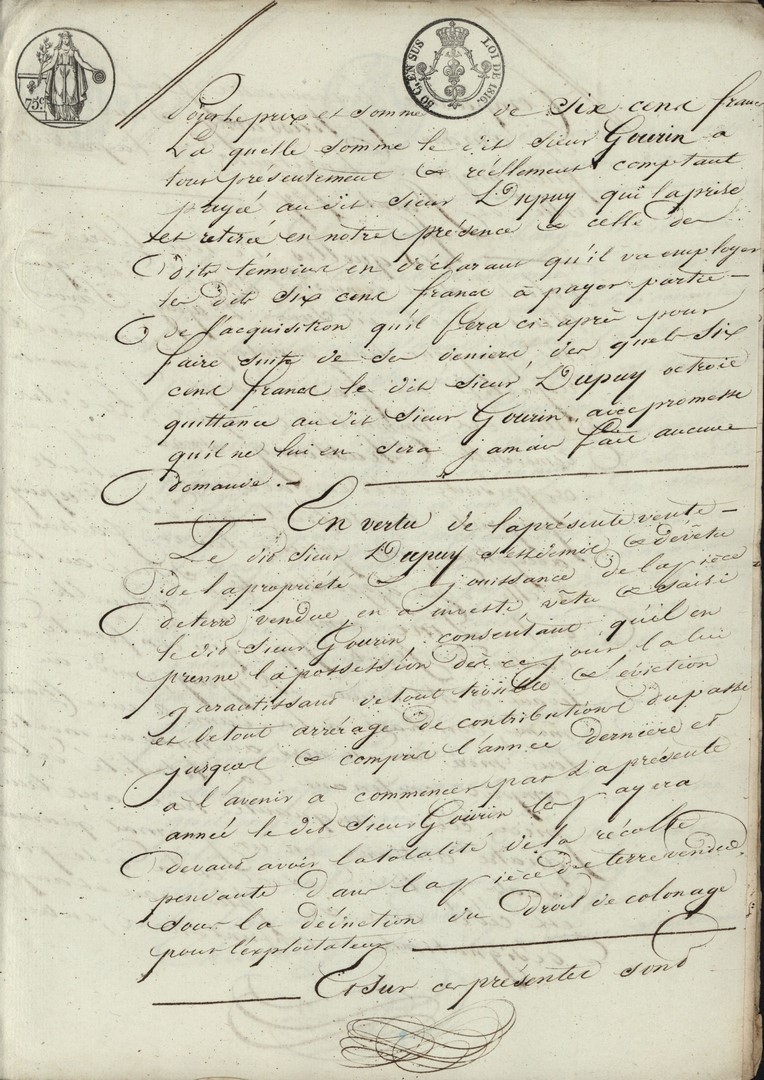 75c
50 C. EN SUS
LOI DE 1816
Pour le prix et somme de Six cens francs
La quelle somme le dit sieur Gourin a
tout présentement & réellement comptant
payée au dit sieur Dupuy qui la prise
et retirée en notre présence & celle des
dits témoins en déclarant qu'il va employer
les dits Six cens francs à payer partie
de l'acquisition qu'il fera ci après pour
faire suite de ses deniers, des quels Six
cens francs le dit sieur Dupuy octroie
quittance au dit sieur Gourin, avec promesse
qu'il ne lui en sera jamais fait aucune
demande. —
En vertu de la présente vente —
Le dit sieur Dupuy s'est démis & dévétu
de la propriété & jouissance de la pièce
de terre vendue, en a investi vétu & saisi
le dit sieur Gourin : consentant qu'il en
prenne la possession dès ce jour la lui
garantissant de tout trouble & d'éviction
et de tout arrérage de contributions du passé
jusques & compris l'année dernière et
à l'avenir à commencer par la présente
année le dit sieur Gourin les payera
devant avoir la totalité de la récolte
pendante dans la pièce de terre vendue.
sous la déduction du droit de colonage
pour l'exploitateur
Et sur ces présentes sont